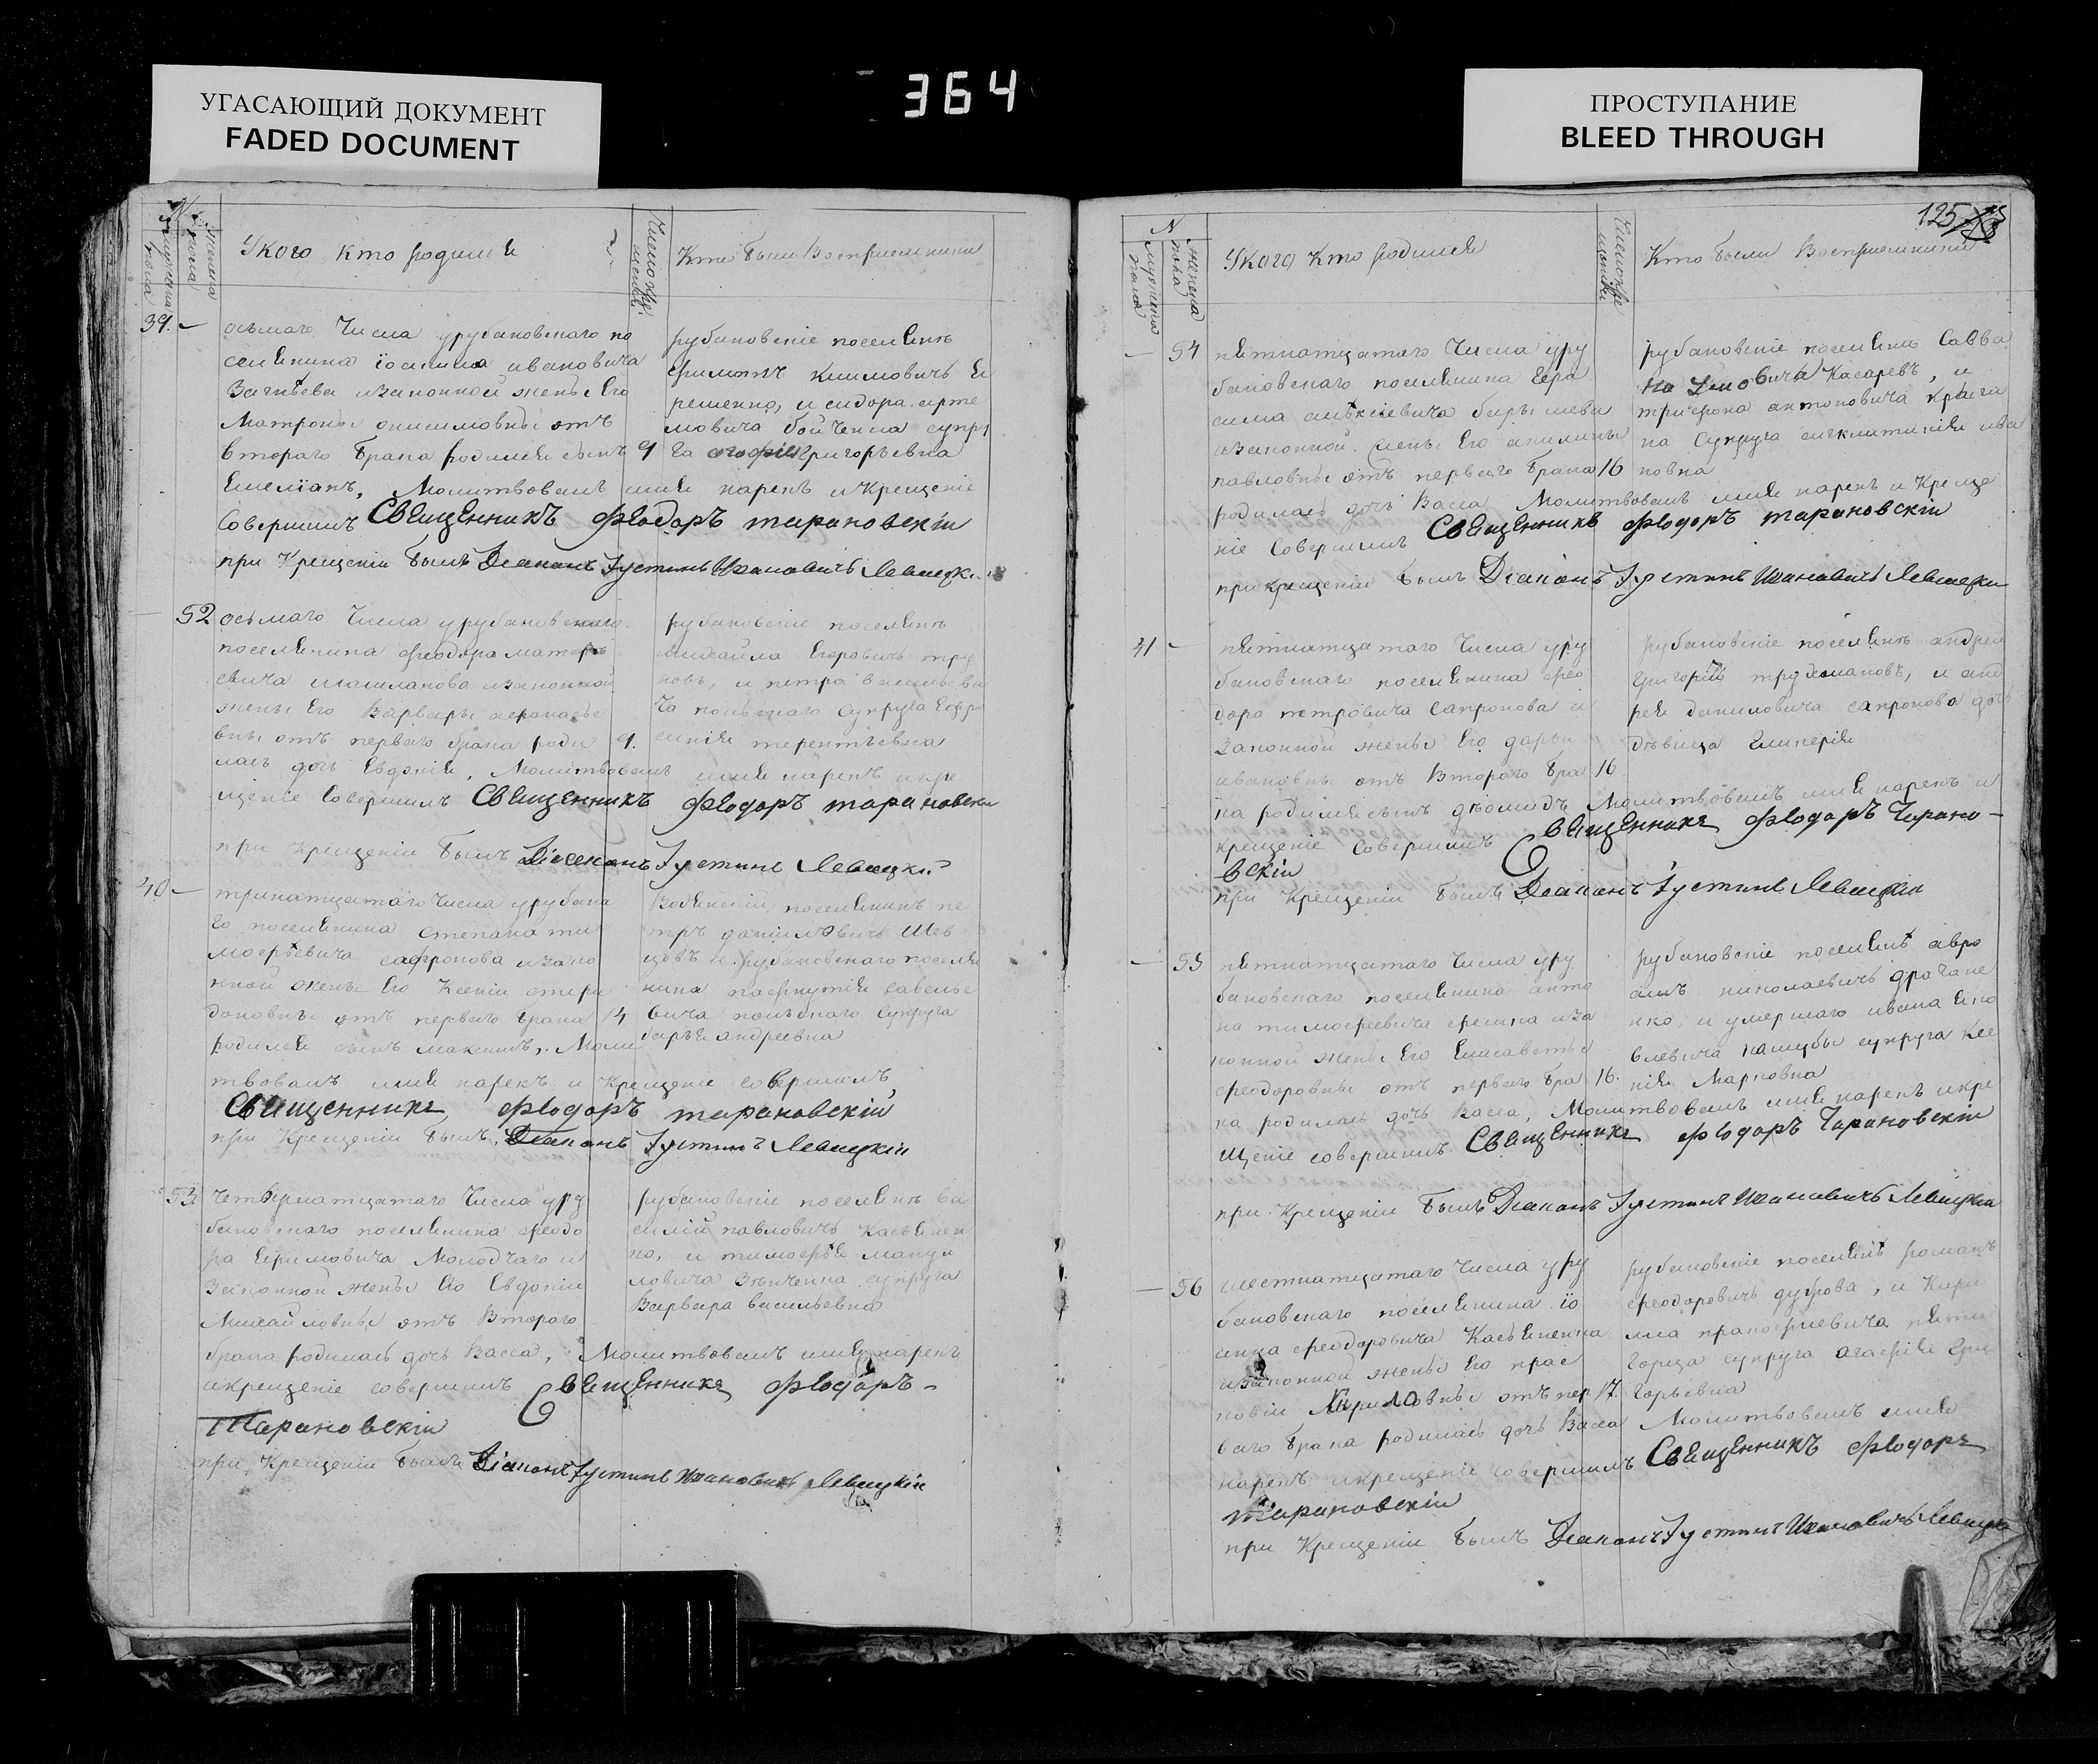 364
УГАСАЮЩИЙ ДОКУМЕНТ
FADED DOCUMENT
ПРОСТУПАНИЕ
BLEED THROUGH
N
женска пола
мужеска пола
Укого кто родился
Число крещенія
Кто были Восприемники
39.
осьмаго Числа урубановскаго по
селянина іоанна ивановича
изаконной жены Его
Матроны онисимовны отъ
втораго брака родился сынъ
Емеліанъ, Молитвовалъ имя нарекъ и Крещеніе
Совершилъ Священникъ Фѣодоръ тарановскій
при Крещеніи былъ Діаконъ Іустинъ Ивановичъ Левицкій
9
рубановскіе поселянъ
Климовичъ
решенко, и сидора арте
мовича бойченка супру
га григорьевна
52
осьмаго Числа урубановскаго
поселянина феодора матфѣ
евича изаконной
жены Его Варвары афанасье
вны отъ перваго брака роди
лась дочь Евдокія, Молитвовалъ имя нарекъ икре
щеніе Совершилъ Священникъ Фѣодоръ тарановскій
при Крещеніи былъ Діаконъ Іустинъ Левицкій
9.
рубановскіе поселянъ
михайла Егоровичъ тру
новъ, и петра васильеви
ча польскаго Супруга Ефро
синія терентіевна
40
тринатцатаго Числа урубана
го поселянина стефана ти
мофѣевича сафронова изако
нной жены Его Ксеніи спири
доновны отъ перваго брака
родился сынъ максимъ, Моли
твовалъ имя нарекъ и Крещеніе совершилъ
Священникъ Фѣодоръ тарановскій
при Крещеніи былъ Діаконъ Іустинъ Левицкій
14
поселянинъ пе
тръ даніиловичъ Шев
цовъ и рубановскаго поселя
нина пафнутія савелье
вича польскаго Супруга
дарья андреевна
53
Четвернатцатаго Числа уру
бановскаго поселянина феодо
ра Ефимовича Молодчаго и
Законной жены Его Евдокіи
Михайловны отъ Втораго
брака родилась дочь Васса, Молитвовалъ имя нарекъ
икрещеніе совершилъ Священникъ Фѣодоръ
Тарановскій
при Крещеніи былъ Діаконъ Іустинъ Ивановичъ Левицкій
рубановскіе поселянъ ва
силій павловичъ Касьянен
ко, и тимофѣя мануи
ловича супруга
Варвара васильевна
125
N
женска пола
мужеска пола
Укого Кто родился
Число крещенія
Кто были Восприемники
54
пятнатцатаго Числа уру
бановскаго поселянина Гера
сима алексіевича
изаконной жены Его акилины
павловны отъ перваго брака
родилась дочь Васса Молитвовалъ имя нарекъ и Креще
ніе Совершилъ Священникъ Фѣодоръ тарановскій
прикрещеніи былъ Діаконъ Іустинъ Ивановичъ Левицкій
16
рубановскіе поселянъ Савва
Касаревъ, и
трифона антоновича
на Супруга ива
новна
41
пятнатцатаго Числа уру
бановскаго поселянина фео
дора петровича Сапронова и
Законной жены Его дарьи
ивановны отъ Втораго бра
ка родился сынъ діомидъ Молитвовалъ имя нарекъ и
крещеніе Совершилъ Священникъ Фѣодоръ Тарано-
вскій
при Крещеніи былъ Діаконъ Іустинъ Левицкій
16
рубановскіе поселянъ андрей
григорій и анд
рея даниловича сапронова дочь
дѣвица Гликерія
55
пятнатцатаго Числа уру
бановскаго поселянина анто
на тимофеевича изa
конной жены Его Елисаветы
феодоровны отъ перваго бра
ка родилась дочь Васса, Молитвовалъ имя нарекъ икре
щеніе совершилъ Священникъ Фѣодоръ Тарановскій
при Крещеніи былъ Діаконъ Іустинъ Ивановичъ Левицкій
16.
рубановскіе поселянъ авро
амъ николаевичъ драчане
нко, и умершаго ивана
супруга Ксе
нія Марковна
56
шестнатцатаго Числа уру
бановскаго поселянина іо
анна феодоровича Касьяненка
изаконной жены Его прас
ковіи Кириловны отъ пер
ваго брака родилась дочь Васса Молитвовалъ имя
нарекъ икрещеніе совершилъ Священникъ Фѣодоръ
тарановскій
при Крещеніи былъ Діаконъ Іустинъ Ивановичъ Левицкій
17.
рубановскіе поселянъ романъ
феодоровичъ дуброва, и Кири
ла супруга агафія Гри
горьевна